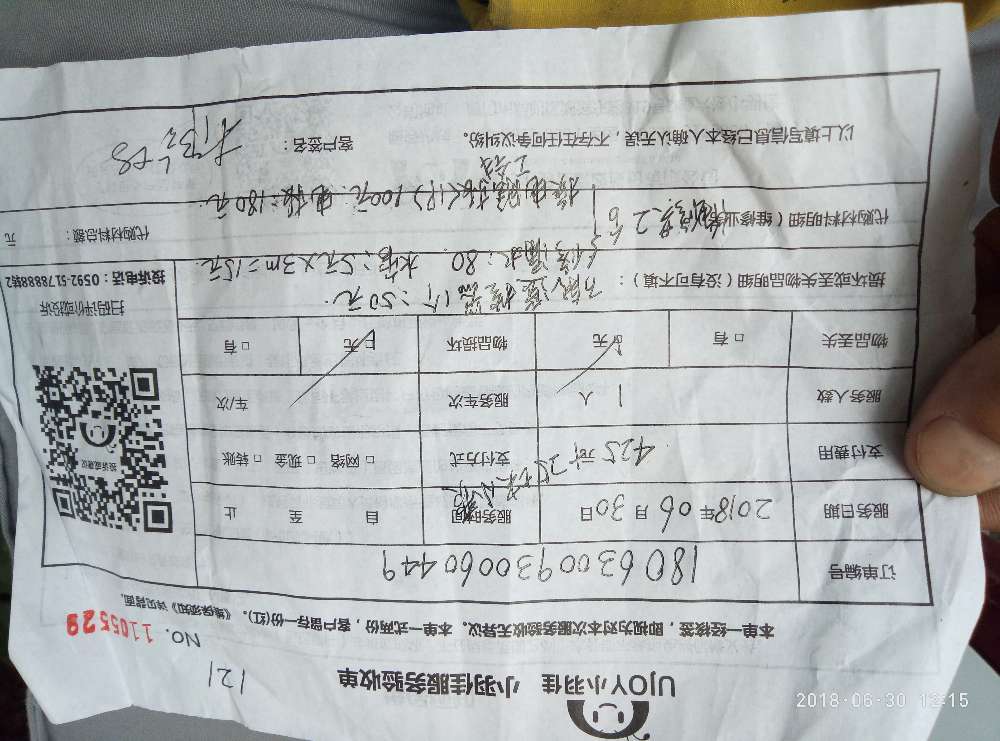 UJOY小羽佳 小羽佳服务验收单
121
本单一经核签，即视为对本次服务验收无异议。本单一式两份，客户留存一份(红)。《维保须知》详见背面。
NO. 1105529
订单编号 180630093006044９
服务日期 2018年06月30日 服务时间 自 至 止
支付费用 425元 支付方式 □ 网络 □ 现金 □ 转账
服务人数 1 人 服务车次 车/次
物品丢失 □ 有 □ 无 物品损坏 □ 无 □ 有
损坏或丢失物品明细（没有可不填）：
1个：50元
80 水管：5元×3m=15元
代购材料明细（维修业务）
100元 180元
代购材料总额： 元
以上填写信息已经本人确认无误，不存在任何争议纠纷。 客户签名：
投诉或建议
扫码评价或投诉
投诉电话：0592-5178888转2
2018-06-30 12:15